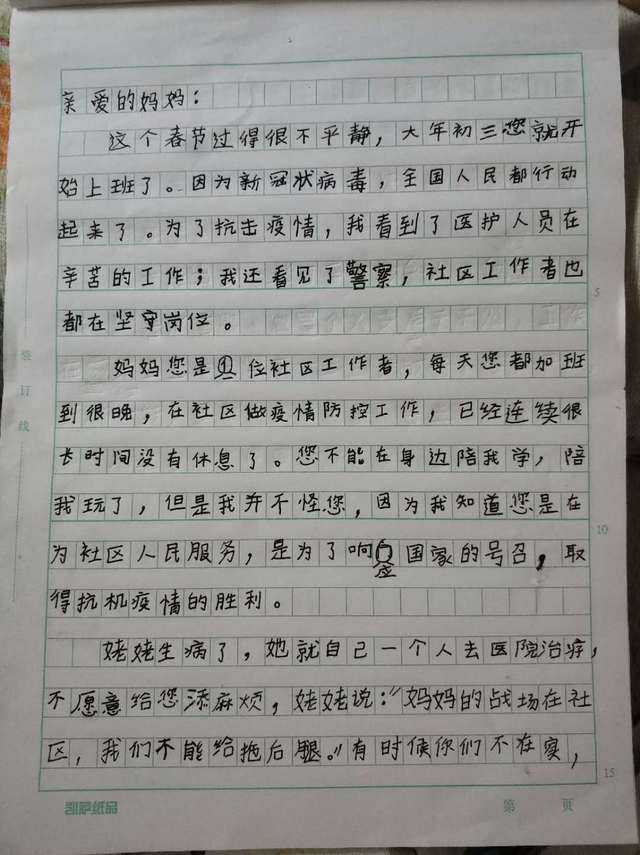 亲爱的妈妈：
这个春节过得很不平静，大年初三您就开
始上班了。因为新冠状病毒，全国人民都行动
起来了。为了抗击疫情，我看到了医护人员在
辛苦的工作；我还看见了警察，社区工作者也
都在坚守岗位。
妈妈您是位社区工作者，每天您都加班
到很晚，在社区做疫情防控工作，已经连续很
长时间没有休息了。您不能在身边陪我学，陪
我玩了，但是我并不怪您，因为我知道您是在
为社区人民服务，是为了响应国家的号召，取
得抗机疫情的胜利。
姥姥生病了，她就自己一个人去医院治疗，
不愿意给您添麻烦，姥姥说："妈妈的战场在社
区，我们不能给拖后腿。"有时候你们不在家，
装订线
5
10
15
凯萨纸品
第 页